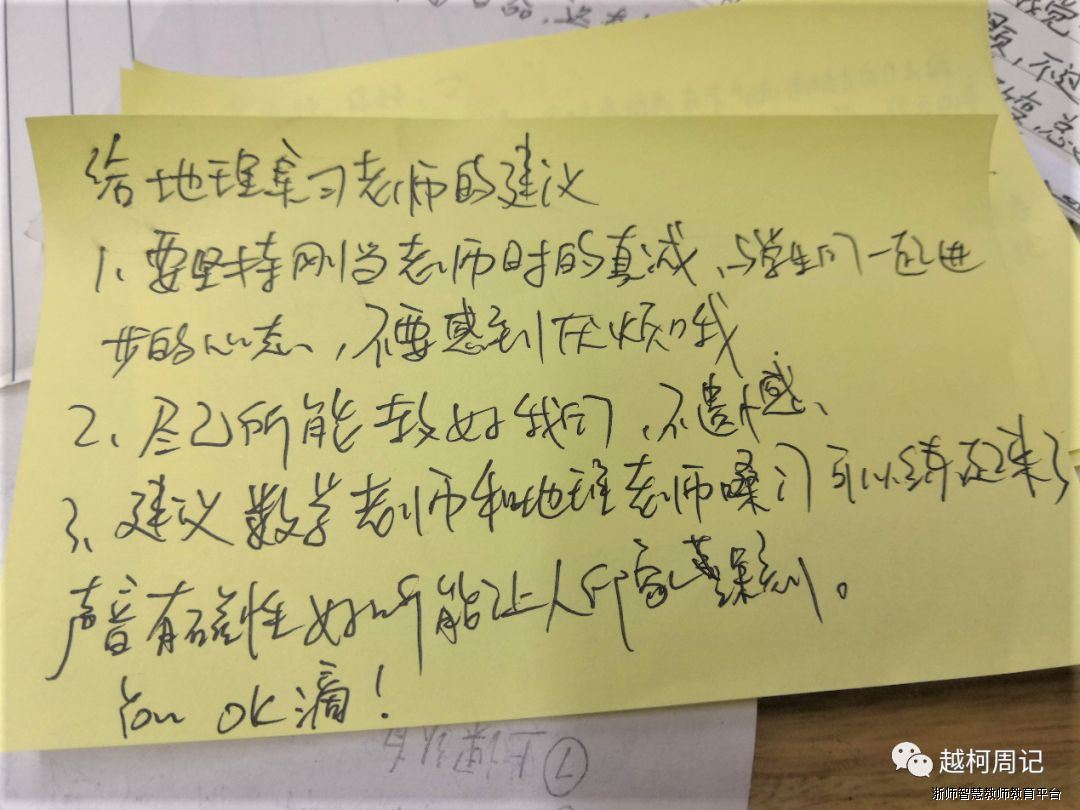 给地理实习老师的建议
1、要坚持刚当老师时的真诚、与学生们一起进
步的心态,不要感到厌烦哦
2、尽己所能教好我们,不遗憾、
3、建议数学老师和地理老师嗓门可以练起来了
声音有磁性好听能让人印象深刻。
You OK滴!
①
越柯周记
浙师智慧教师教育平台